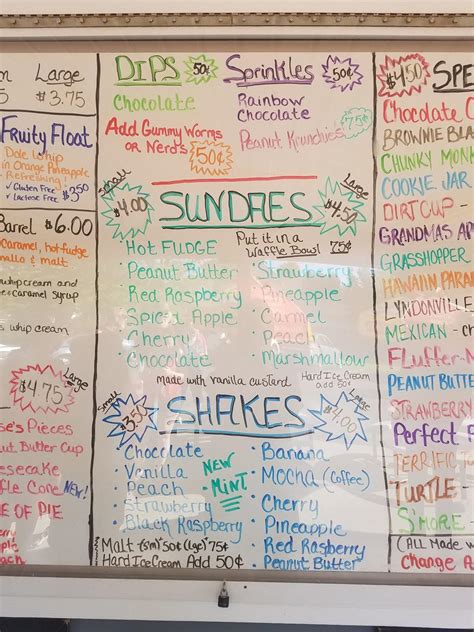 Large
$3.75
Fruity Float
Dole Whip
in Orange Pineapple
Refreshing!
✓ Gluten Free
✓ Lactose Free
Barrel $6.00
caramel, hot fudge
mallo & malt
whip cream and
caramel syrup
whip cream
$4.75 Large
Pieces
Peanut Butter Cup
cheesecake
Waffle Cone NEW!
OF PIE
DIPS 50¢
Chocolate
Sprinkles 50¢
Rainbow
Chocolate
Peanut Krunchie's 75¢
Add Gummy Worms
or Nerd's 50¢
Small $4.00
SUNDAES
Large $4.50
Put it in a
Waffle Bowl! 75¢
Hot Fudge
· Peanut Butter
· Red Raspberry
· Spiced Apple
· Cherry
· Chocolate
· Strawberry
· Pineapple
· Carmel
· Peach
· Marshmallow
made with vanilla custard
Hard Ice Cream
add 50¢
Small $3.50
SHAKES
Large $4.00
· Chocolate
· Vanilla
· Peach
· Strawberry
· Black Raspberry
NEW
MINT
· Banana
· Mocha (Coffee)
· Cherry
· Pineapple
· Red Raspberry
· Peanut Butter
Malt - (sm) 50¢ (lge) 75¢
Hard Ice Cream Add 50¢
$4.50 SPE
Chocolate C
Brownie Bu
Chunky Monk
Cookie Jar
Dirt Cup -
Grandmas Ap
Grasshopper
Hawaiin Parad
Lyndonville
Mexican - Ch
Fluffer-N
Peanut Butter
Strawberry
Perfect S
Terrific
Turtle -
S'more
(All Made w
Change A